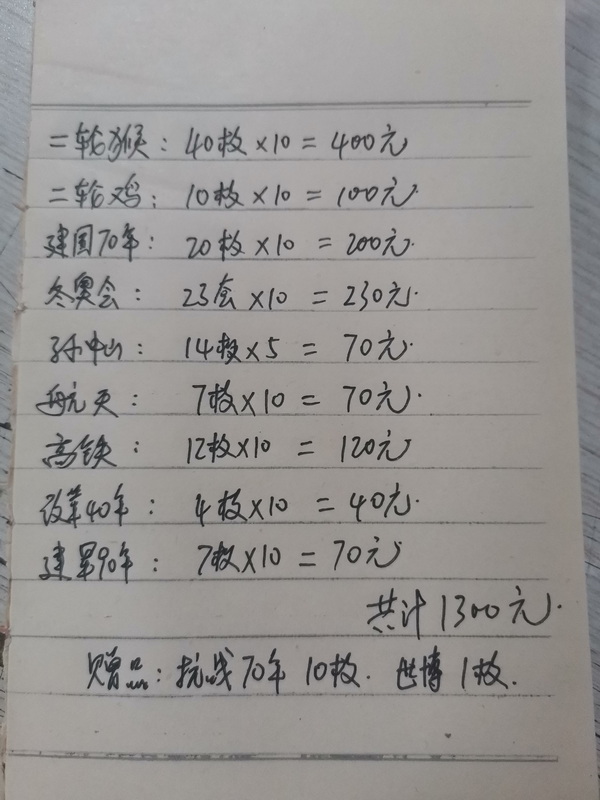 二轮猴：40枚×10＝400元
二轮鸡：10枚×10＝100元.
建国70年：20枚×10＝200元.
冬奥会：23套×10＝230元.
孙中山：14枚×5＝70元.
航天：7枚×10＝70元.
高铁：12枚×10＝120元.
改革40年：4枚×10＝40元.
建军90年：7枚×10＝70元
共计1300元.
赠品：抗战70年10枚.世博1枚.